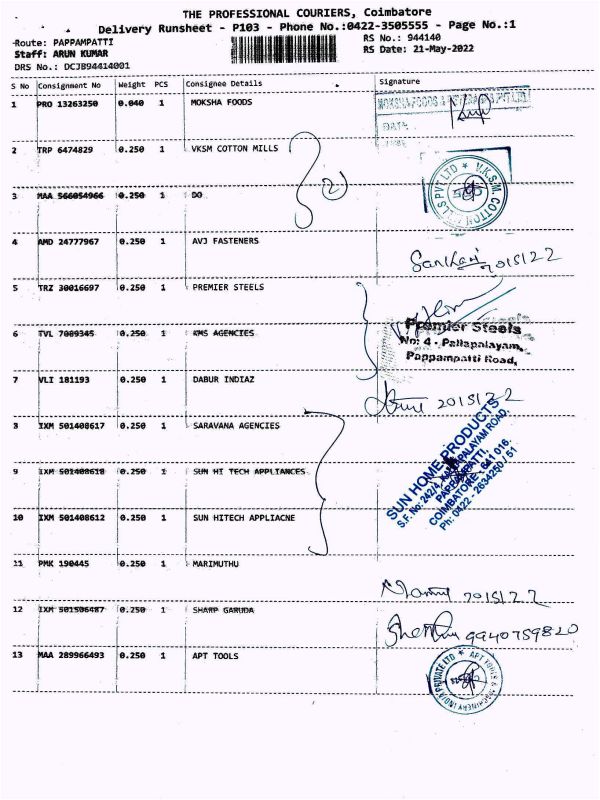 THE PROFESSIONAL COURIERS, Coimbatore
Delivery Runsheet - P103 - Phone No.:0422-3505555 - Page No.:1
Route: PAPPAMPATTI
RS No.: 944140
Staff: ARUN KUMAR
RS Date: 21-May-2022
DRS No.: DCJB94414001
S No Consignment No Weight PCS Consignee Details Signature
1 PRO 13263250 0.040 1 MOKSHA FOODS
DATE
2 TRP 6474829 0.250 1 VKSM COTTON MILLS
2
V.K.S.M. COTTON MILLS PVT LTD
3 MAA 566054966 0.250 1 DO
4 AMD 24777967 0.250 1 AVJ FASTENERS
2015122
5 TRZ 30016697 0.250 1 PREMIER STEELS
Premier Steels
No: 4 - Pallapalayam,
Pappampatti Road,
6 TVL 7089345 0.250 1 KMS AGENCIES
7 VLI 181193 0.250 1 DABUR INDIAZ
2015122
8 IXM 501408617 0.250 1 SARAVANA AGENCIES
SUN HOME PRODUCTS
PAPPAMPATTI,
COIMBATORE - 641 016.
Ph: 0422 - 2634250 / 51
9 IXM 501408618 0.250 1 SUN HI TECH APPLIANCES
10 IXM 501408612 0.250 1 SUN HITECH APPLIACNE
11 PMK 190445 0.250 1 MARIMUTHU
2015122
12 IXM 501506487 0.250 1 SHARP GARUDA
9940759820
13 MAA 289966493 0.250 1 APT TOOLS
APT TOOLS & MACHINERY INDIA PRIVATE LTD